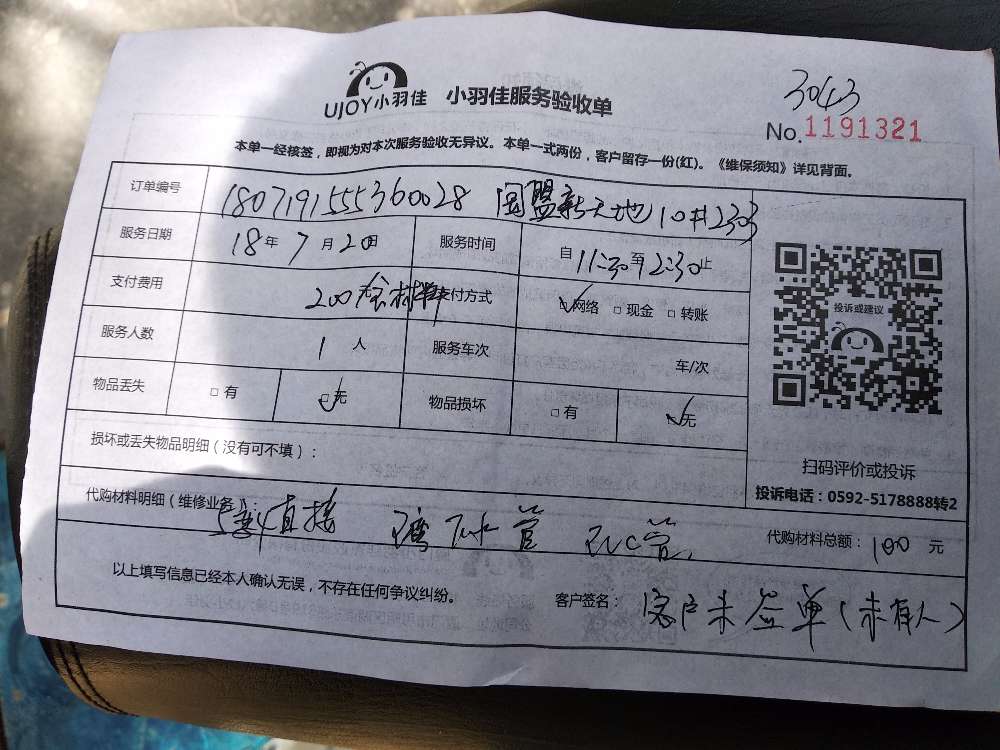 3043
UJOY小羽佳 小羽佳服务验收单
No.1191321
本单一经核签，即视为对本次服务验收无异议。本单一式两份，客户留存一份(红)。《维保须知》详见背面。
订单编号 1807191555360028 国盟新天地10#2303
服务日期 18年7月20日 服务时间 自11:30至12:30止
支付费用 200元含材料 支付方式 网络 现金 转账
服务人数 1人 服务车次 车/次
物品丢失 有 无 物品损坏 有 无
投诉或建议
损坏或丢失物品明细（没有可不填）：
扫码评价或投诉
投诉电话：0592-5178888转2
代购材料明细（维修业务）： 直接 弯 管 PVC管 代购材料总额：100元
以上填写信息已经本人确认无误，不存在任何争议纠纷。 客户签名： 客户未签单(未有人)